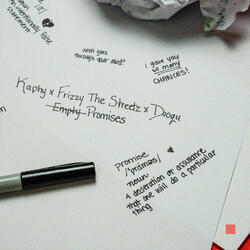 intentionally false
statement
what goes
through your mind?
i gave you
so many
CHANCES!
Kaphy x Frizzy The Streetz x Doogu
Empty Promises
Promise
/ˈpräməs/
noun
A declaration or assurance
that one will do a particular
thing